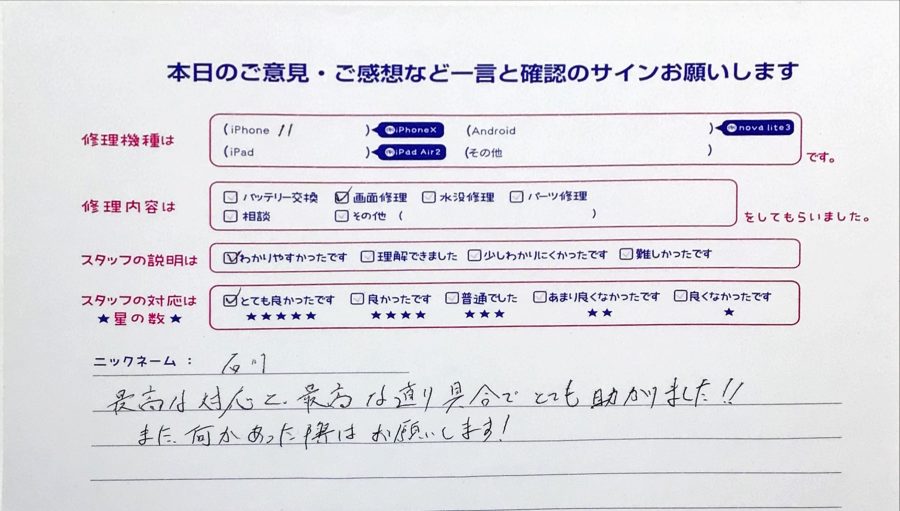 本日のご意見・ご感想など一言と確認のサインお願いします
修理機種は
(iPhone 11 ) iPhoneX (Android ) nova lite3
(iPad ) iPad Air2 (その他 ) です。
修理内容は
バッテリー交換 画面修理 水没修理 パーツ修理
相談 その他 ( ) をしてもらいました。
スタッフの説明は わかりやすかったです 理解できました 少しわかりにくかったです 難しかったです
スタッフの対応は とても良かったです 良かったです 普通でした あまり良くなかったです 良くなかったです
★星の数★ ★★★★★ ★★★★ ★★★ ★★ ★
ニックネーム: 石川
最高な対応と、最高な直り具合でとても助かりました!!
また、何かあった際はお願いします!